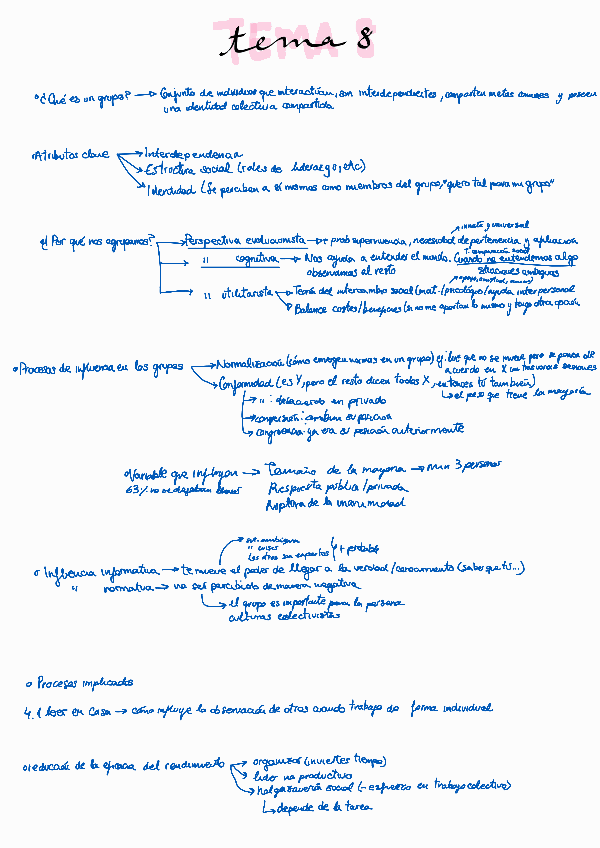 TEMA 8
tema 8
¿Qué es un grupo? → Conjunto de individuos que interactúan, son interdependientes, comparten metas comunes y poseen
una identidad colectiva compartida.
Atributos clave → Interdependencia
→ Estructura social (roles de liderazgo, etc)
→ Identidad (Se perciben a sí mismos como miembros del grupo, "quiero tal para mi grupo"
innata y universal
¿Por qué nos agrupamos? → Perspectiva evolucionista → + prob supervivencia, necesidad de pertenencia y afiliación
comparación social
→ " cognitiva → Nos ayuda a entender el mundo. Cuando no entendemos algo
observamos al resto situaciones ambiguas
→ " utilitarista → Teoría del intercambio social (mat./psicológico/ayuda interpersonal
→ Balance costes/beneficios (si no me aportan lo mismo y tengo otra opción
Procesos de influencia en los grupos → Normalización (cómo emergen normas en un grupo) ej. luz que no se mueve pero se ponen de
acuerdo en X
→ Conformidad (es Y, pero el resto dicen todos X, entonces tú también)
→ el peso que tiene la mayoría
→ " : desacuerdo en privado
→ conversión: cambian su posición
→ congruencia: ya era su posición anteriormente
Variable que influyen → Tamaño de la mayoría → min 3 personas
63% no se dejaban llevar Respuesta pública/privada
Ruptura de la unanimidad
sit. ambigua
" crisis
los otros son expertos + probable
Influencia informativa → te mueve el poder de llegar a la verdad/conocimiento (saber que tú...)
" normativa → no ser percibido de manera negativa
→ el grupo es importante para la persona
culturas colectivistas
Procesos implicados
4.1 leer en casa → cómo influye la observación de otros cuando trabajo de forma individual
reducción de la eficacia del rendimiento → organizar (inviertes tiempo)
→ líder no productivo
→ holgazanería social (- esfuerzo en trabajo colectivo)
↳ depende de la tarea